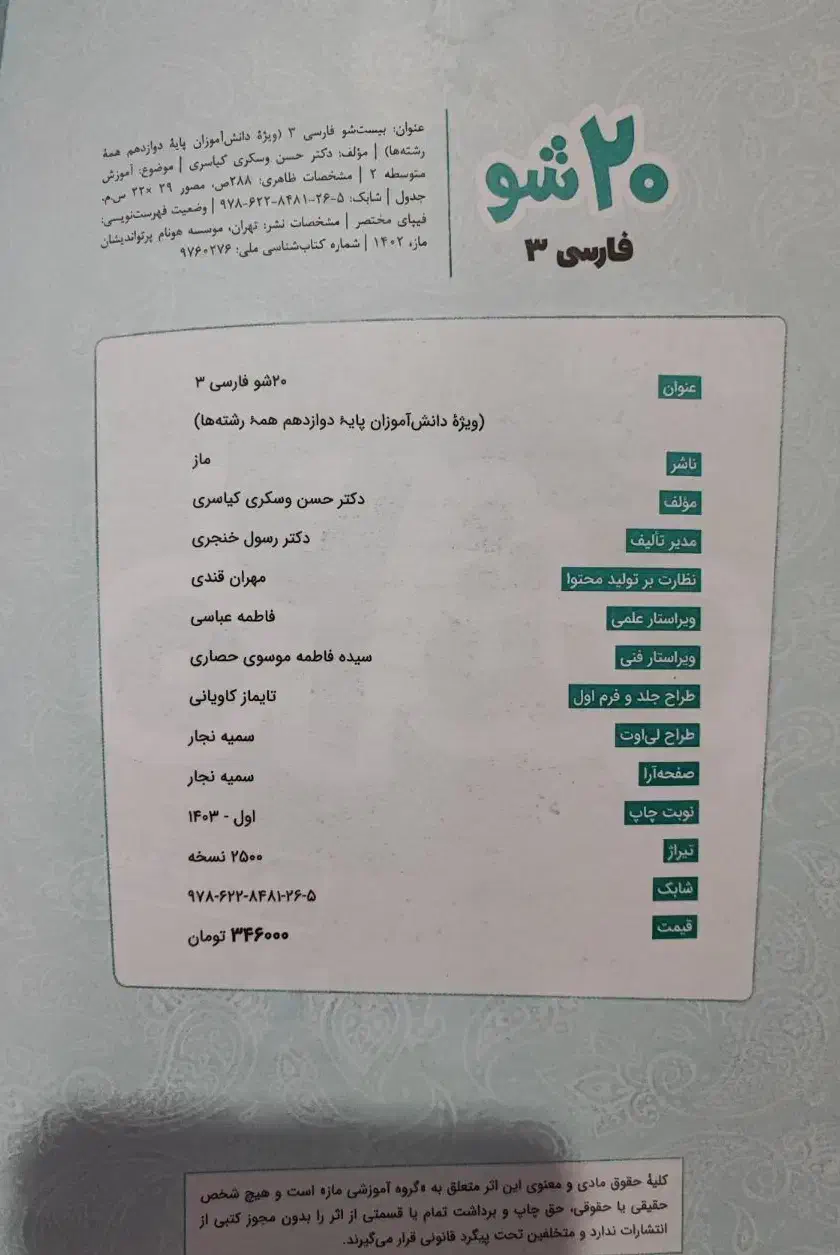 ۲۰شو
فارسی ۳
عنوان: بیست‌شو فارسی ۳ (ویژهٔ دانش‌آموزان پایهٔ دوازدهم همهٔ
رشته‌ها) | مؤلف: دکتر حسن وسکری کیاسری | موضوع: آموزش
متوسطه ۲ | مشخصات ظاهری: ۲۸۸ص، مصور ۲۹ ×۲۲ س.م.
جدول | شابک: ۵-۲۶-۸۴۸۱-۶۲۲-۹۷۸ | وضعیت فهرست‌نویسی:
فیپای مختصر | مشخصات نشر: تهران، موسسه هونام پرتواندیشان
ماز، ۱۴۰۲ | شماره کتاب‌شناسی ملی: ۹۷۶۰۲۷۶
عنوان ۲۰شو فارسی ۳
(ویژهٔ دانش‌آموزان پایهٔ دوازدهم همهٔ رشته‌ها)
ناشر ماز
مؤلف دکتر حسن وسکری کیاسری
مدیر تألیف دکتر رسول خنجری
نظارت بر تولید محتوا مهران قندی
ویراستار علمی فاطمه عباسی
ویراستار فنی سیده فاطمه موسوی حصاری
طراح جلد و فرم اول تایماز کاویانی
طراح لی‌اوت سمیه نجار
صفحه‌آرا سمیه نجار
نوبت چاپ اول - ۱۴۰۳
تیراژ ۲۵۰۰ نسخه
شابک ۹۷۸-۶۲۲-۸۴۸۱-۲۶-۵
قیمت ۳۴۶۰۰۰ تومان
کلیهٔ حقوق مادی و معنوی این اثر متعلق به «گروه آموزشی ماز» است و هیچ شخص
حقیقی یا حقوقی، حق چاپ و برداشت تمام یا قسمتی از اثر را بدون مجوز کتبی از
انتشارات ندارد و متخلفین تحت پیگرد قانونی قرار می‌گیرند.